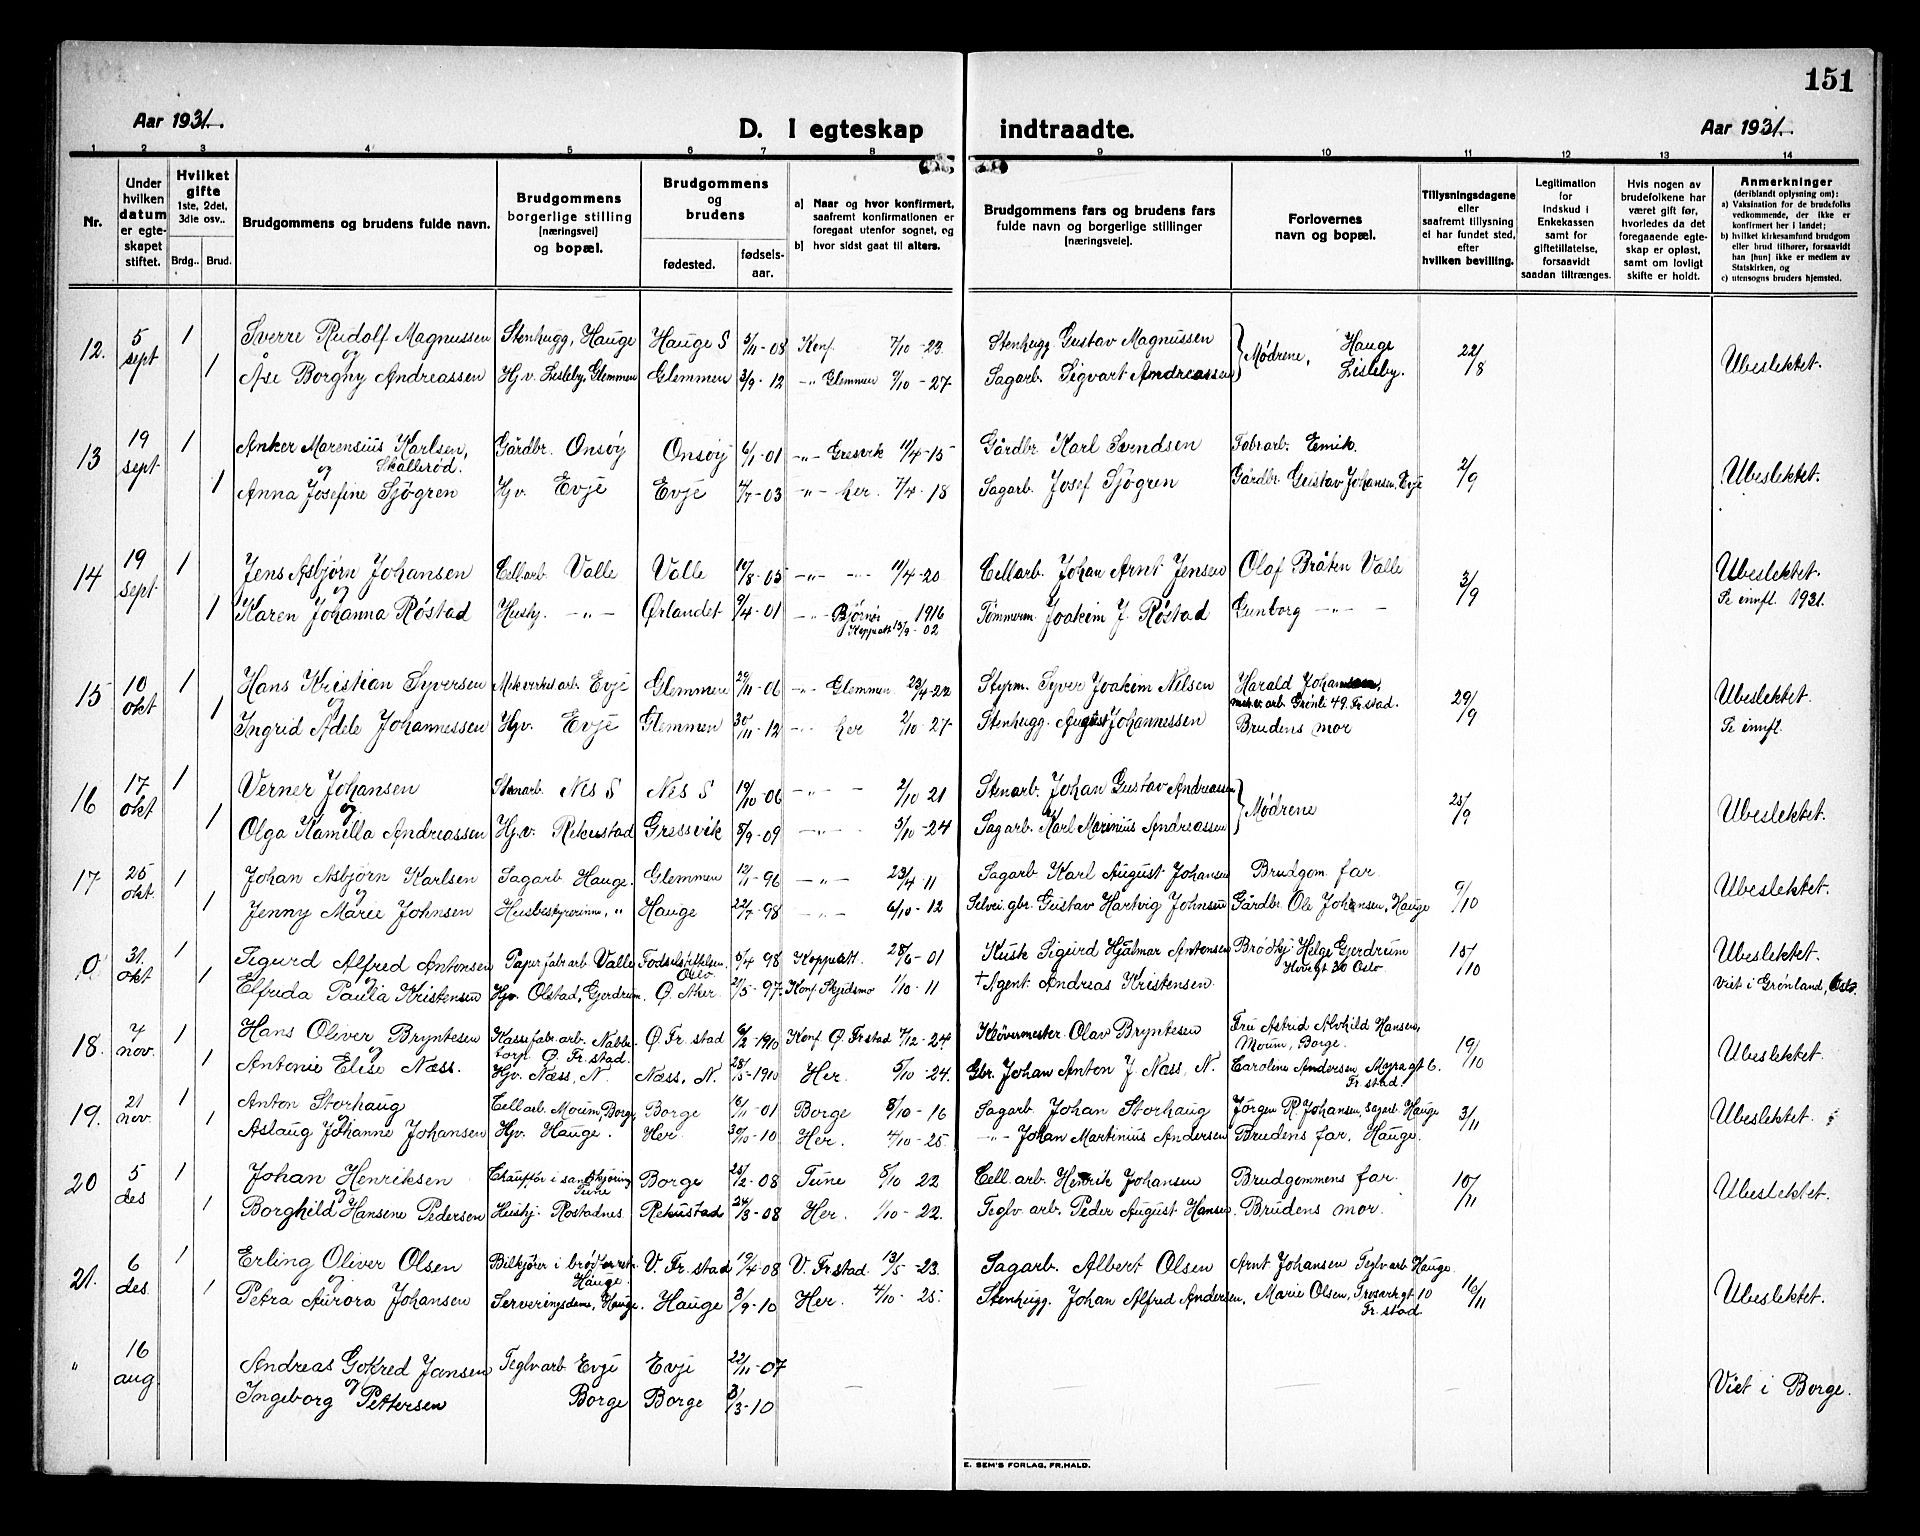 151
Aar 1931. D. I egteskap indtraadte. Aar 1931.
1 2 3 4 5 6 7 8 9 10 11 12 13 14
Nr.
Under hvilken datum er egteskapet stiftet.
Hvilket gifte 1ste, 2det, 3die osv..
Brdg. Brud.
Brudgommens og brudens fulde navn.
Brudgommens borgerlige stilling [næringsvei] og bopæl.
Brudgommens og brudens
fødested. fødselsaar.
a) Naar og hvor konfirmert, saafremt konfirmationen er foregaat utenfor sognet, og
b) hvor sidst gaat til alters.
Brudgommens fars og brudens fars fulde navn og borgerlige stillinger [næringsveie].
Forlovernes navn og bopæl.
Tillysningsdagene eller saafremt tillysning ei har fundet sted, efter hvilken bevilling.
Legitimation for indskud i Enkekassen samt for giftetillatelse, forsaavidt saadan tiltrænges.
Hvis nogen av brudefolkene har været gift før, hvorledes da det foregaaende egteskap er opløst, samt om lovligt skifte er holdt.
Anmerkninger (deriblandt oplysning om):
a) Vaksination for de brudefolks vedkommende, der ikke er konfirmert her i landet;
b) hvilket kirkesamfund brudgom eller brud tilhører, forsaavidt han [hun] ikke er medlem av Statskirken, og
c) utensogns bruders hjemsted.
12. 5 sept 1 Sverre Rudolf Magnussen Stenhugg, Hauge Hauge S 5/11-08 Konf. 7/10-23 Stenhugg Gustav Magnussen Mødrene, Hauge 22/8 Ubeslektet.
og
1 Åse Borgny Andreassen Hj.v. Lisleby, Glemmen Glemmen 3/9-12 -"- Glemmen 9/10-27 Sagarb. Sigvart Andreassen Lisleby.
13 19 sept 1 Anker Marensius Karlsen, Gårdbr. Onsøy Onsøy 6/1-01 -"- Gresvik 11/4-15 Gårdbr Karl Svendsen Fabrarb. Emik. 2/9 Ubeslektet.
og Skållerød.
1 Anna Josefine Sjøgren Hj.v. Evje Evje 4/7-03 -"- her. 7/4-18 Sagarb. Josef Sjøgren Gårdbr Gustav Johansen, Evje
14 19 sept 1 Jens Asbjørn Johansen Cellarb Valle Valle 10/8-05 -"- -"- 11/4-20 Cellarb. Johan Arnt Jensen Olaf Bråten Valle 3/9 Ubeslektet.
og
1 Karen Johanna Røstad Hushj. -"- Ørlandet 9/4-01 -"- Bjørnør 1916 Tømmerm. Joakim J. Røstad Gunborg -"- Se innfl. 1931.
Koppatt 13/9-02
15 10 okt 1 Hans Kristian Syversen Mekverkstarb Evje Glemmen 29/11-06 -"- Glemmen 23/4-22 Styrm. Syver Joakim Nilsen Harald Johansen, 29/9 Ubeslektet.
og mek.v. arb Grønli 49. Fr.stad.
1 Ingrid Adele Johannessen Hjv. Evje Glemmen 30/11-12 -"- her 2/10-27 Stenhugg. August Johannessen Brudens mor Se innfl.
16 17 okt 1 Verner Johansen Stenarb. Nes S Nes S 19/10-06 -"- 2/10 21 Stenarb. Johan Gustav Andreassen Mødrene 25/9 Ubeslektet.
og
1 Olga Kamilla Andreassen Hj.v. Rekustad Gressvik 5/9-09 -"- 5/10-24 Sagarb. Karl Marinius Andreassen
17 25 okt. 1 Johan Asbjørn Karlsen Sagarb Hauge. Glemmen 12/1-96 -"- 23/4 11 Sagarb Karl August Johansen Brudgom far 9/10 Ubeslektet.
og
1 Jenny Marie Johnsen Husbestyrerinne, " Hauge 22/7-98 -"- 6/10-12 Selvei.gbr. Gustav Hartvig Johnsen Gårdbr Ole Johansen, Hauge
0. 31. okt 1 Sigurd Alfred Antonsen Papirfabrarb Valle Fødselsstiftelsen. Oslo 5/4 98 Koppatt. 28/6-01 Kusk Sigurd Hjalmar Antonsen Brødkj. Helge Gjerdrum 15/10 Ubeslektet.
og 36 Oslo
1 Elfrida Paula Kristensen Hjv. Olstad, Gjerdrum. Ø. Aker 2/5-97 Konf. Skjedsmo 1/10-11 †Agent. Andreas Kristensen. Viet i Grønland, Oslo.
18. 7 nov. 1 Hans Oliver Bryntesen Kassefabr.arb. Nabbetorp Ø. Fr.stad. Ø. Fr. stad 6/2-1910 Konf. Ø. Fr.stad 7/12-24 Røvermester Olav Bryntesen Fru Astrid Alvhild Hansen, 19/10 Ubeslektet.
og Moum, Borge.
1 Antonie Elise Næss. Hjv. Næss, N. Næss, N. 28/5-1910 Her. 5/10-24. Gbr. Johan Anton J. Næss, N. Caroline Andersen, Myragt 6. Fr.stad.
19. 21 nov. 1 Anton Storhaug Cellarb Moum, Borge Borge 16/11-01 Borge 8/10-16 Sagarb Johan Storhaug Jørgen R. Johansen, sagarb. Hauge 3/11 Ubeslektet.
og
1 Aslaug Johanne Johansen Hjv. Hauge. Her. 30/10-10 Her. 4/10-25. -"- Johan Martinius Andersen Brudens far, Hauge.
20 5 des 1 Johan Henriksen Chauffør i sandkjøring Tune Borge 25/2-08 Tune 8/10 22 Cell.arb. Henrik Johansen Brudgommens far. 10/11 Ubeslektet.
og
1 Borghild Hansene Pedersen Hushj. Rostadnes. Rekustad 24/3-08 Her. 1/10-22. Teglv arb. Peder August Hansen. Brudens mor.
21. 6 des. 1 Erling Oliver Olsen Bilkjører i brødforretn. Hauge. V. Fr. stad 19/4-08 V. Fr.stad. 13/5-23. Sagarb. Albert Olsen Arnt Johansen Teglvarb Hauge 16/11 Ubeslektet.
og
1 Petra Aurora Johansen Serveringsdame, Hauge. Hauge 3/9-10 Her. 4/10-25. Stenhugg. Johan Alfred Andersen, Marie Olsen, Tresarkgt 10 Fr.stad.
" 16 aug. Andreas Gokred Jansen Teglvarb Evje Evje 22/11-07 Viet i Borge.
og
Ingeborg Pettersen Borge Borge 3/3-10
E. SEM'S FORLAG, FR.HALD.